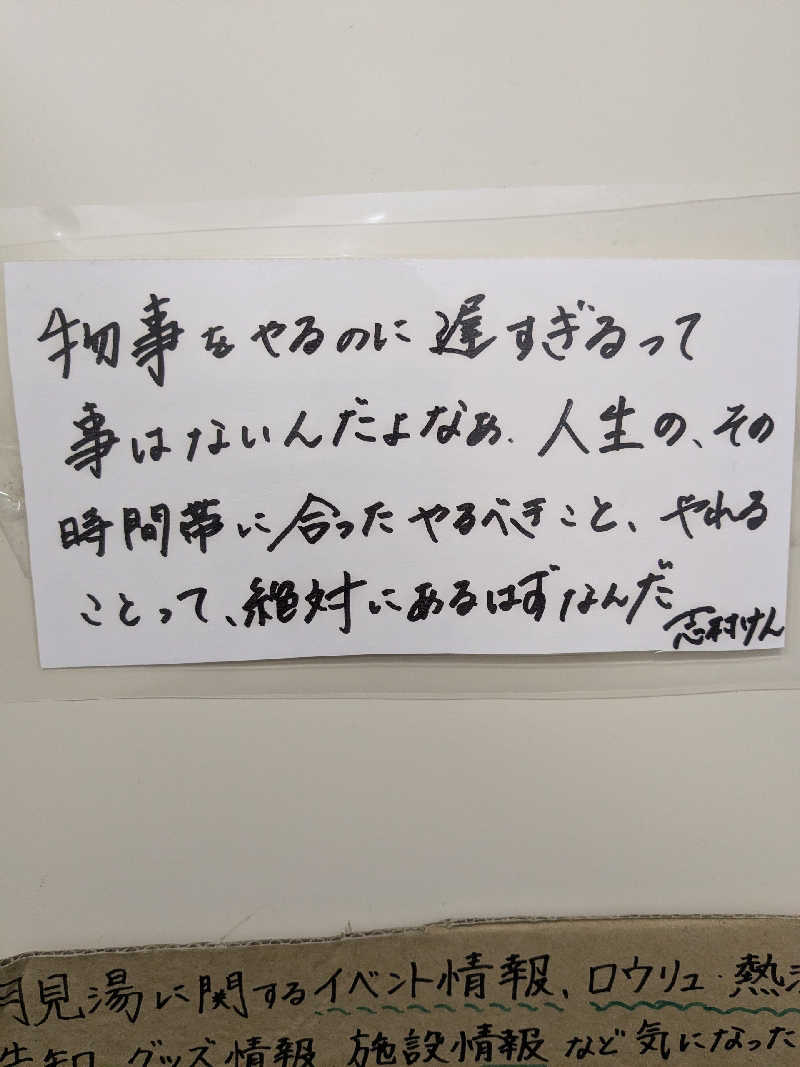 物事をやるのに遅すぎるって
事はないんだよなぁ、人生の、その
時間帯に合ったやるべきこと、やれる
ことって、絶対にあるはずなんだ
志村けん
月見湯に関するイベント情報、ロウリュ・熱
告知 グッズ情報 施設情報など気になった